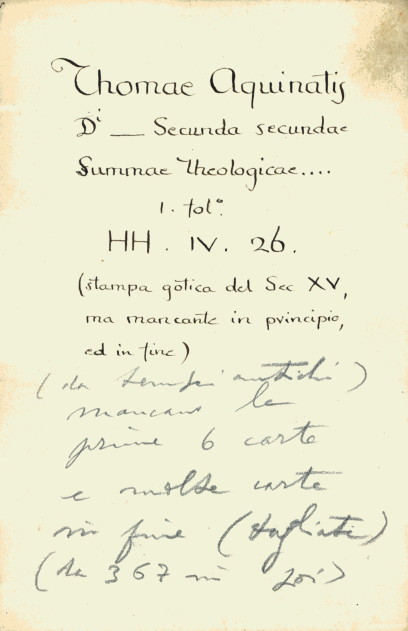 Thomae Aquinatis
Di — Secunda secundae
Summae Theologicae....
1. fol°.
HH . IV. 26.
(stampa gotica del Sec XV,
ma mancante in principio,
ed in fine)
(da tempi antichi)
mancano le
prime 6 carte
e molte carte
in fine (tagliate)
(da 367 in poi)